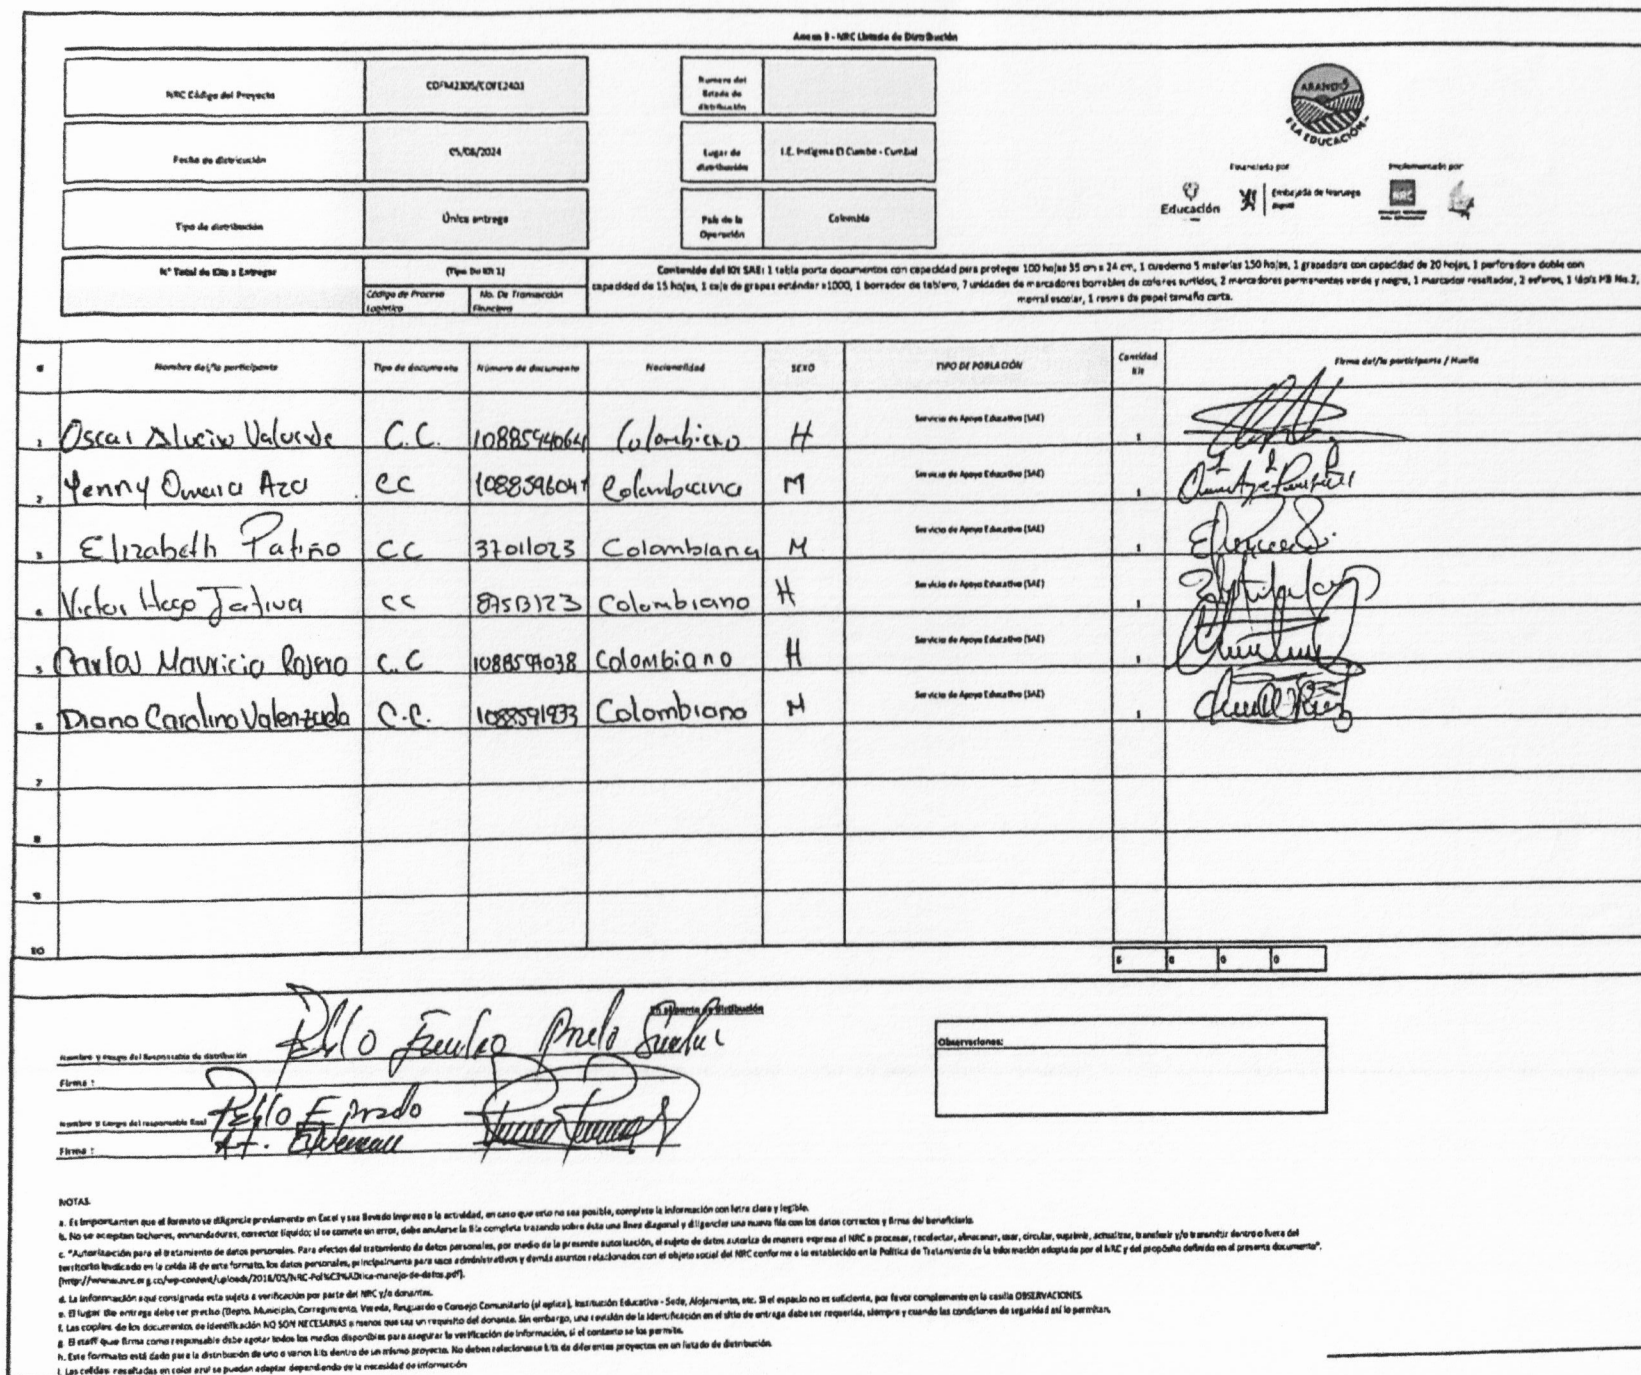 Anexo B - NRC Listado de Distribución
NRC Código del Proyecto
COFM2305/COFE2403
Numero del listado de distribución
Fecha de districución
05/08/2024
Lugar de distribución
I.E. Indigena El Cumbe - Cumbal
Tipo de distribución
Única entrega
País de la Operación
Colombia
ARANDO
LA EDUCACIÓN
Financiado por
Implementado por
Educación
Embajada de Noruega
Bogotá
NRC
N° Total de Kits a Entregar
(Tipo De Kit 1)
Código de Proceso Logístico
No. De Transacción Financiera
Contenido del Kit SAE: 1 tabla porta documentos con capacidad para proteger 100 hojas 35 cm x 24 cm, 1 cuaderno 5 materias 150 hojas, 1 grapadora con capacidad de 20 hojas, 1 perforadora doble con
capacidad de 15 hojas, 1 caja de grapas estándar x1000, 1 borrador de tablero, 7 unidades de marcadores borrables de colores surtidos, 2 marcadores permanentes verde y negro, 1 marcador resaltador, 2 esferos, 1 lápiz HB No.2,
morral escolar, 1 resma de papel tamaño carta.
# Nombre del/la participante Tipo de documento Número de documento Nacionalidad SEXO TIPO DE POBLACIÓN Cantidad Kit Firma del/la participante / Huella
1 Oscar Alveiro Valverde C.C. 1088594064 Colombiano H Servicio de Apoyo Educativo (SAE) 1
2 Yenny Omaira Aza CC 1088596047 Colombiana M Servicio de Apoyo Educativo (SAE) 1
3 Elizabeth Patiño CC 37011023 Colombiana M Servicio de Apoyo Educativo (SAE) 1
4 Victor Hugo Jativa CC 87513123 Colombiano H Servicio de Apoyo Educativo (SAE) 1
5 Carlos Mauricio Rosero C.C 1088597038 Colombiano H Servicio de Apoyo Educativo (SAE) 1
6 Diana Carolina Valenzuela C.C. 1088591933 Colombiano M Servicio de Apoyo Educativo (SAE) 1
7
8
9
10
6 0 0 0
En el punto de distribución
Nombre y cargo del Responsable de distribución Pablo Emilio
Firma :
Nombre y cargo del responsable final Pablo E Prado
Firma :
Observaciones:
NOTAS.
a. Es importanten que el formato se diligencie previamente en Excel y sea llevado impreso a la actividad, en caso que esto no sea posible, complete la información con letra clara y legible.
b. No se aceptan tachones, enmendaduras, corrector líquido; si se comete un error, debe anularse la fila completa trazando sobre ésta una línea diagonal y diligenciar una nueva fila con los datos correctos y firma del beneficiario.
c. "Autorización para el tratamiento de datos personales. Para efectos del tratamiento de datos personales, por medio de la presente autorización, el sujeto de datos autoriza de manera expresa al NRC a procesar, recolectar, almacenar, usar, circular, suprimir, actualizar, transferir y/o transmitir dentro o fuera del
territorio lo indicado en la celda 18 de este formato, los datos personales, principalmente para usos administrativos y demás asuntos relacionados con el objeto social del NRC conforme a lo establecido en la Política de Tratamiento de la Información adoptada por el NRC y del propósito definido en el presente documento".
(http://www.nrc.org.co/wp-content/uploads/2016/05/NRC-Pol%C3%ADtica-manejo-de-datos.pdf).
d. La información aquí consignada esta sujeta a verificación por parte del NRC y/o donantes.
e. El lugar de entrega debe ser preciso (Depto, Municipio, Corregimiento, Vereda, Resguardo o Consejo Comunitario (si aplica), Institución Educativa - Sede, Alojamiento, etc. Si el espacio no es suficiente, por favor complemente en la casilla OBSERVACIONES.
f. Las copias de los documentos de identificación NO SON NECESARIAS a menos que sea un requisito del donante. Sin embargo, una revisión de la identificación en el sitio de entrega debe ser requerida, siempre y cuando las condiciones de seguridad así lo permitan.
g. El staff que firma como responsable debe agotar todos los medios disponibles para asegurar la verificación de información, si el contexto se los permite.
h. Este formato está dado para la distribución de uno o varios kits dentro de un mismo proyecto. No deben relacionarse kits de diferentes proyectos en un listado de distribución.
i. Las celdas resaltadas en color azul se puedan adaptar dependiendo de la necesidad de información